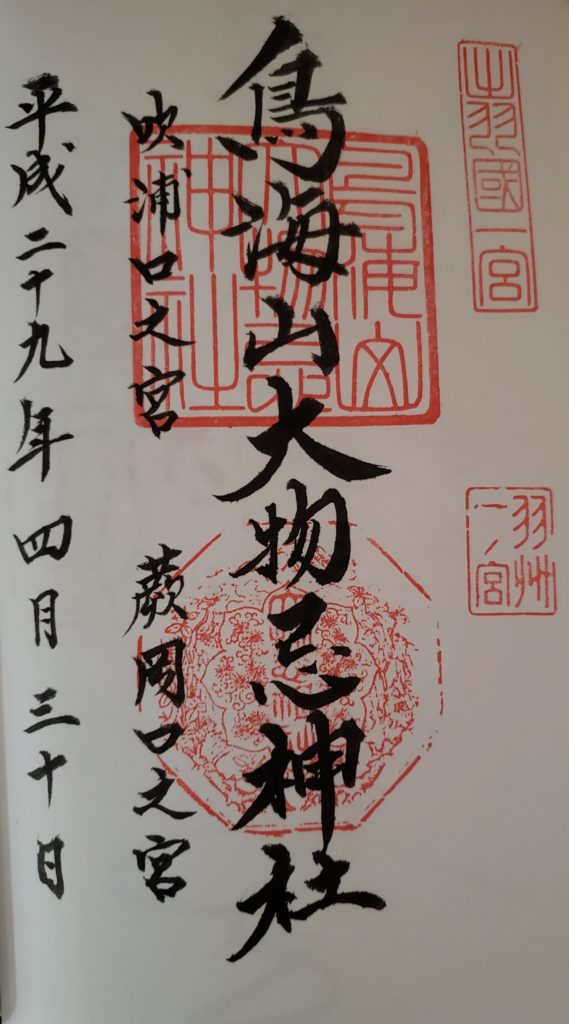 出羽國一宮
羽州
一ノ宮
鳥海山大物忌神社
吹浦口之宮
蕨岡口之宮
平成二十九年四月三十日